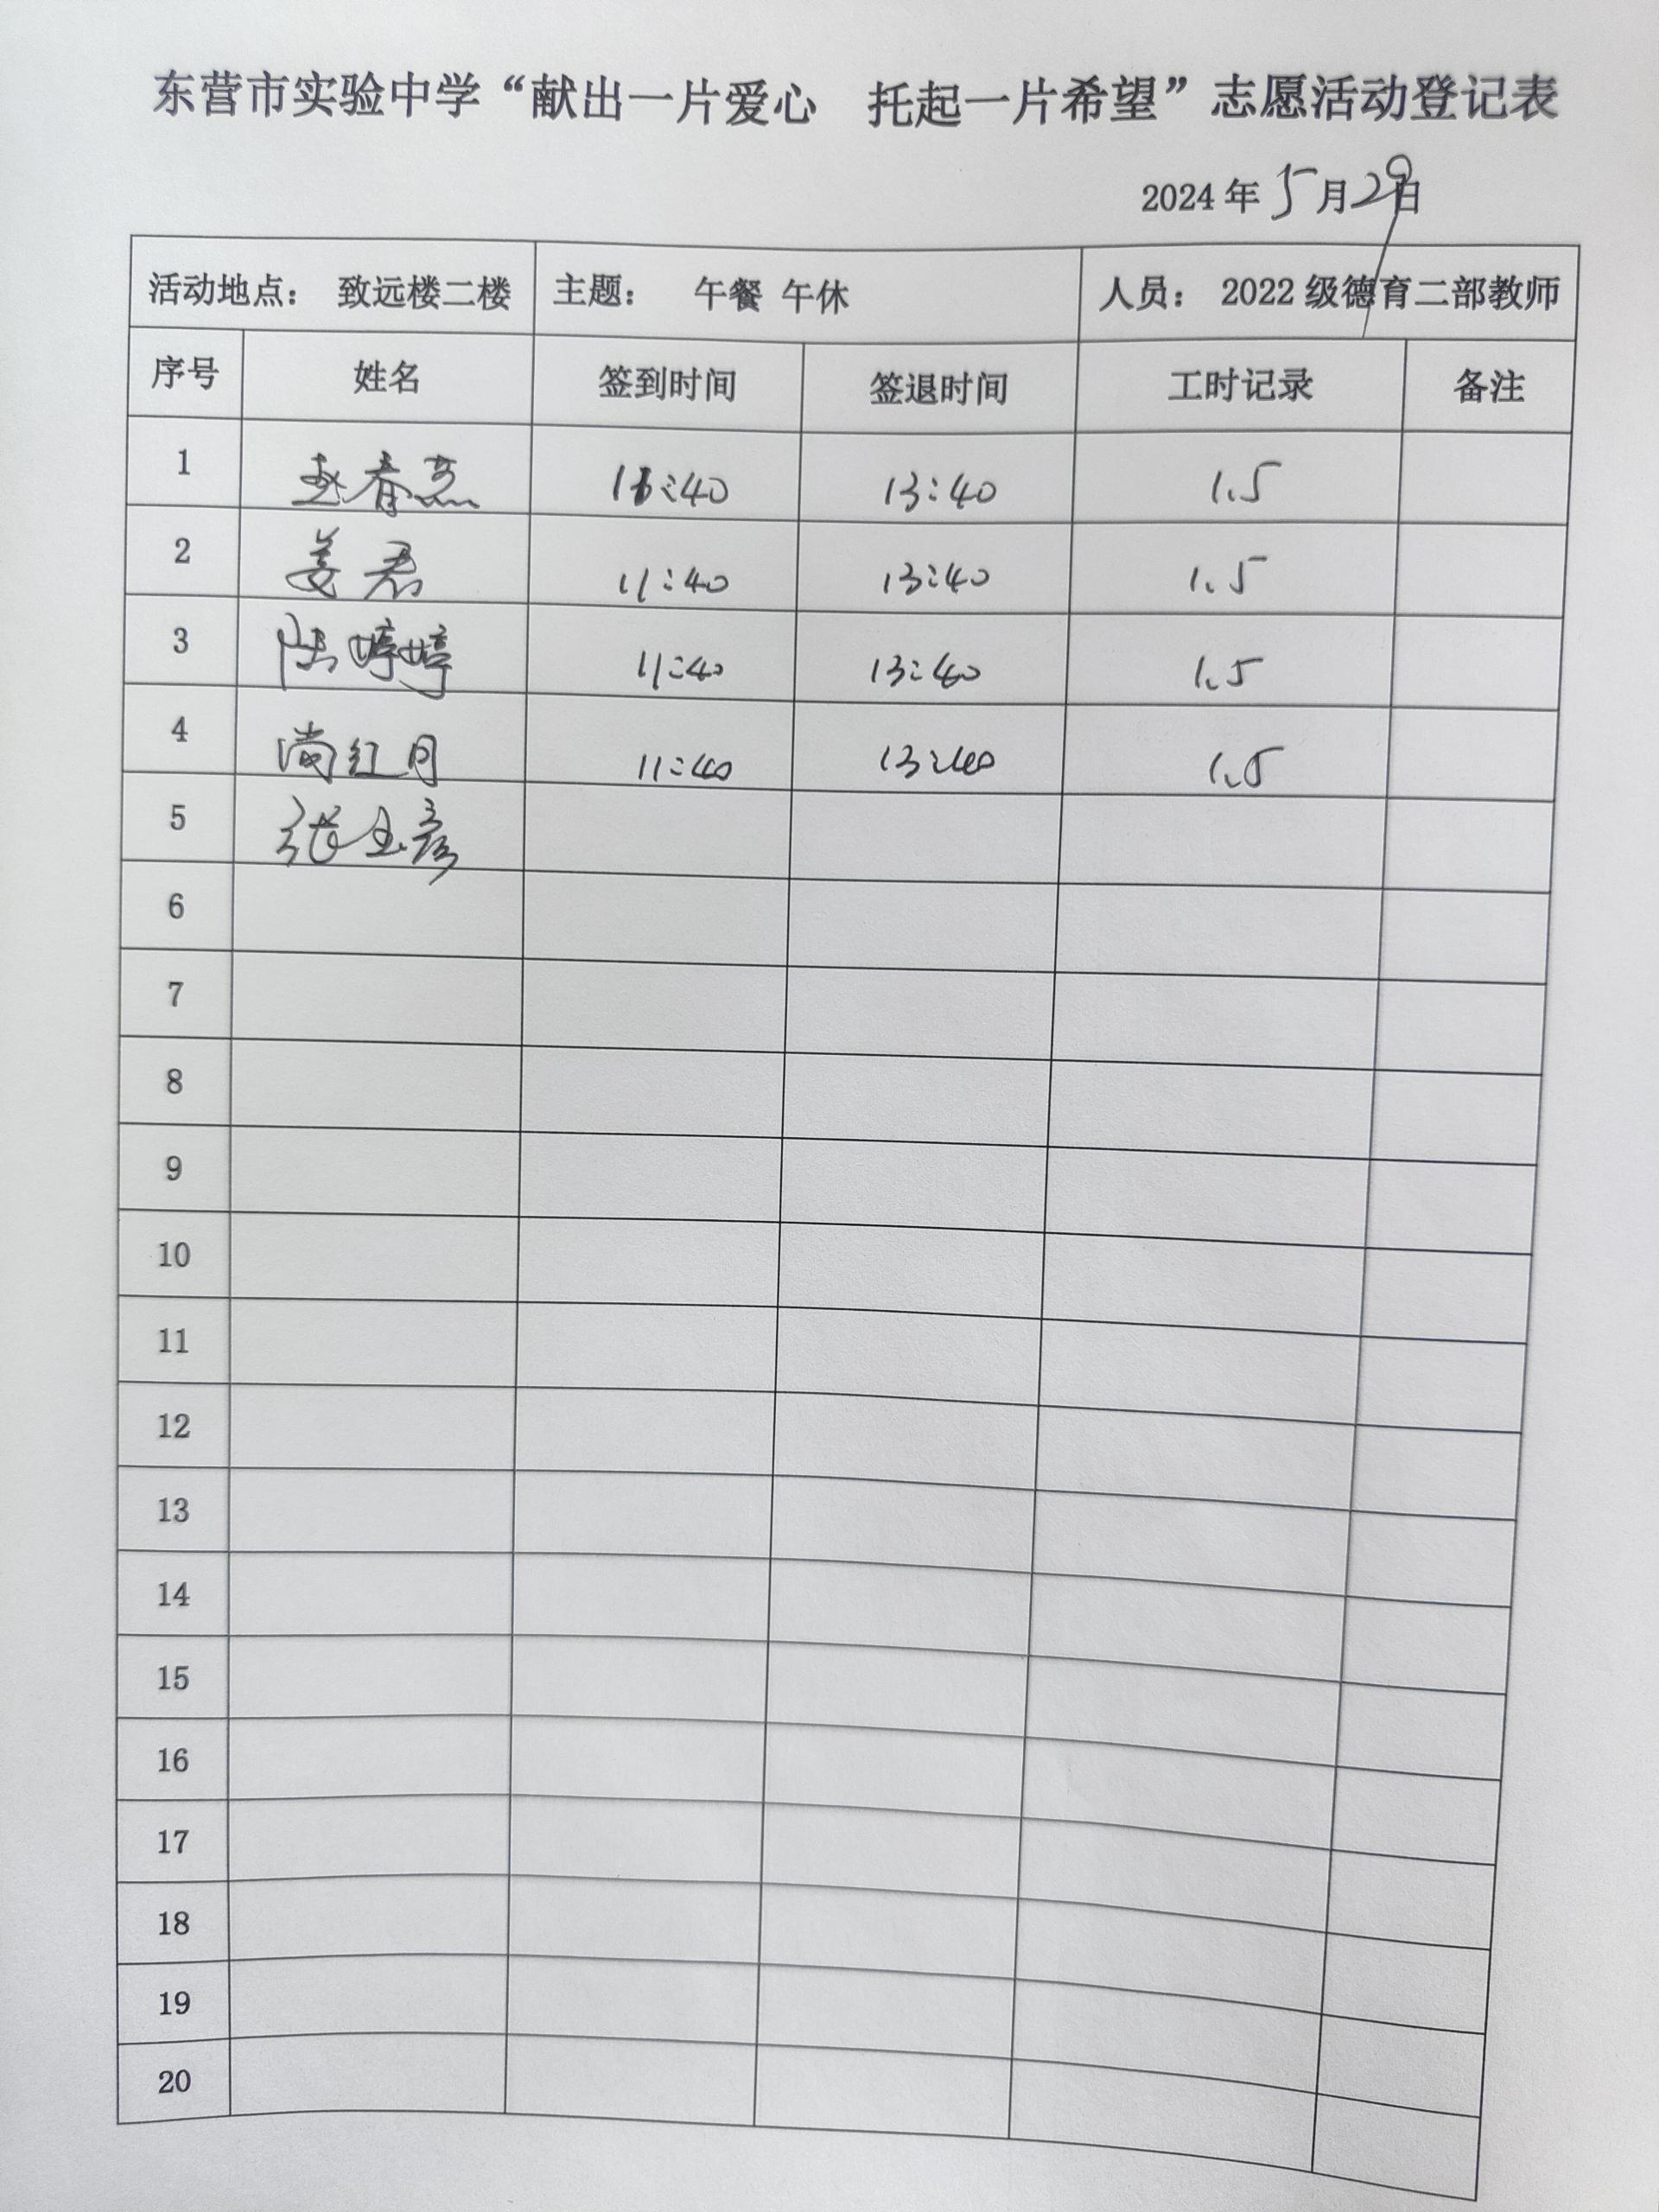 东营市实验中学“献出一片爱心 托起一片希望”志愿活动登记表
2024年5月29日
活动地点： 致远楼二楼 主题： 午餐 午休 人员： 2022级德育二部教师
序号 姓名 签到时间 签退时间 工时记录 备注
1 赵春燕 11:40 13:40 1.5
2 姜君 11:40 13:40 1.5
3 陆婷婷 11:40 13:40 1.5
4 尚红月 11:40 13:40 1.5
5 张玉彦
6
7
8
9
10
11
12
13
14
15
16
17
18
19
20